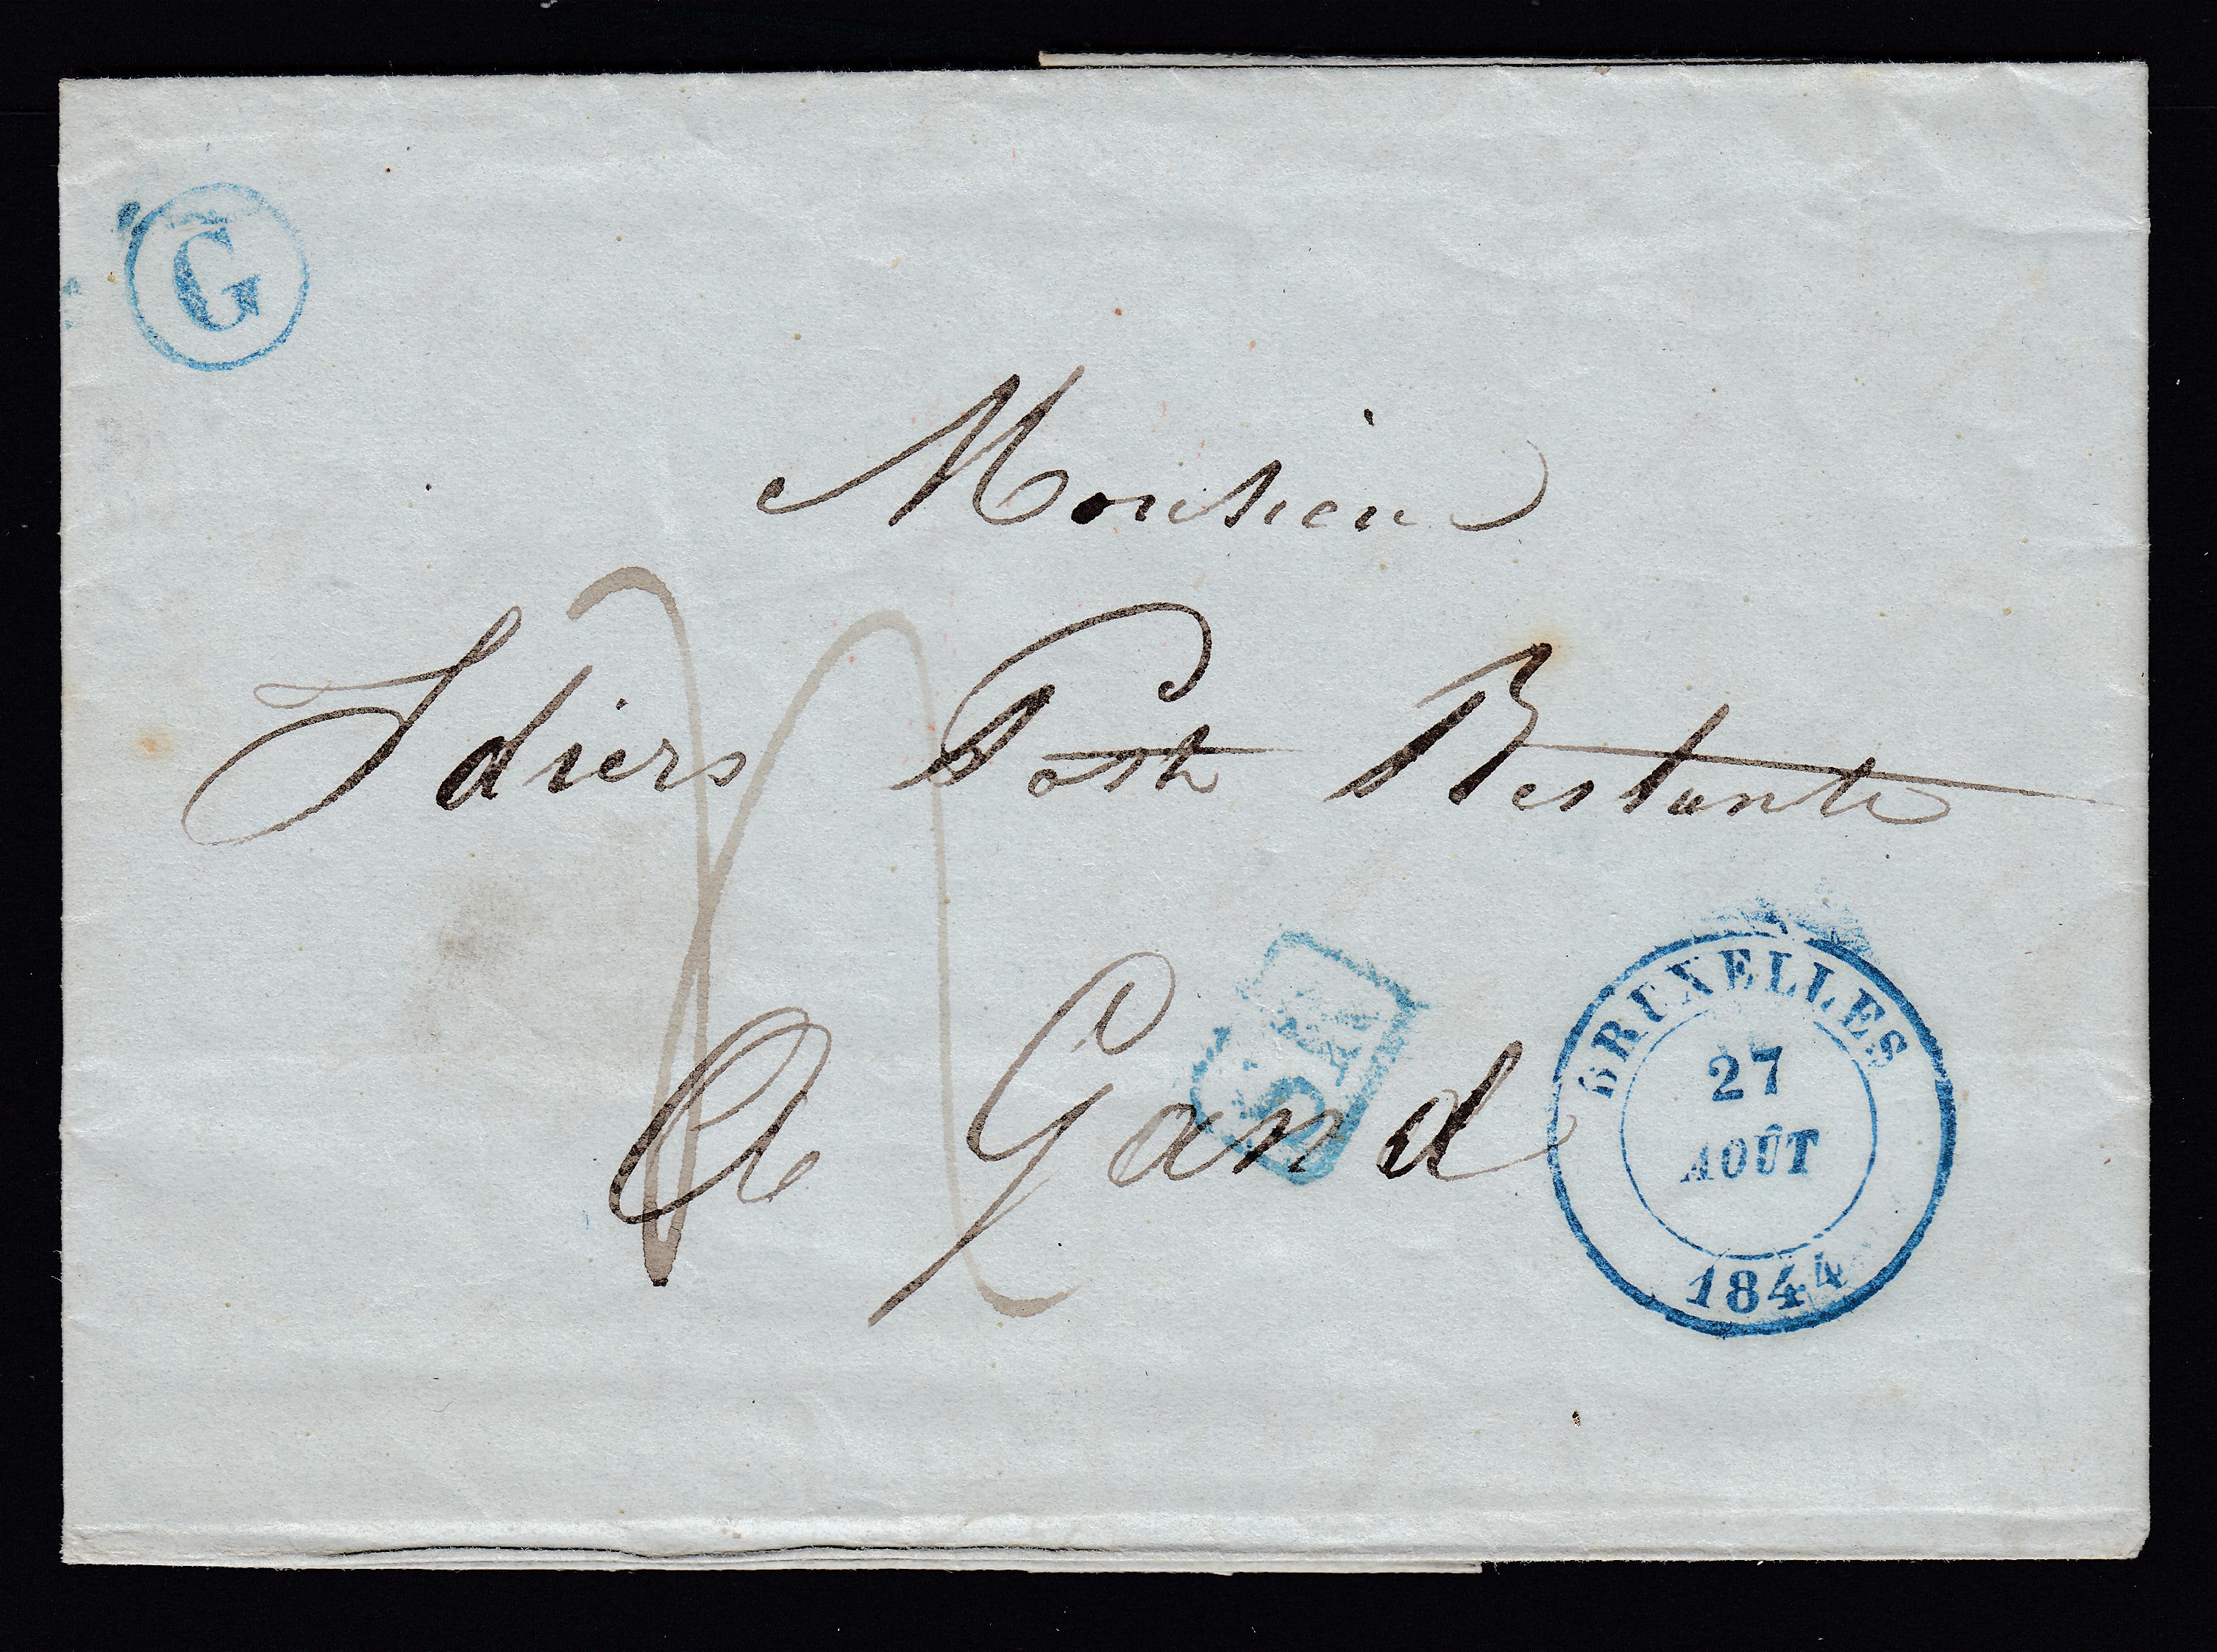 G
Monsieur
Idiers Poste Restante
A Gand
BRUXELLES
27
AOÛT
1844